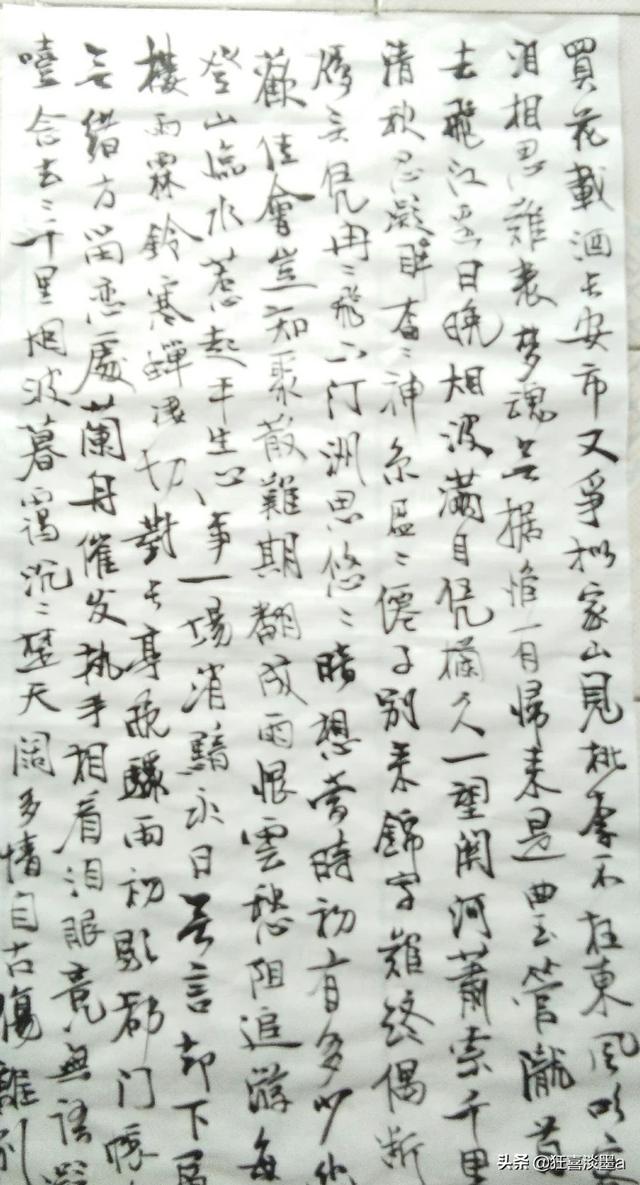 買花載酒长安市又爭似家山見桃李不枉東風吹客
泪相思難表梦魂无据惟有歸来是曲玉管隴首
云飛江邊日晚烟波满目凭欄久一望関河萧索千里
清秋忍凝眸杳〻神京盈〻僊子别来錦字難終偶断
鴈无凭冉〻飛下汀洲思悠〻暗想當時初有多少幽
歡佳會豈知聚散難期翻成雨恨雲愁阻追游每
登山臨水惹起平生心事一場消黯永日无言却下層
樓雨霖鈴寒蟬凄切對长亭晚驟雨初歇都门帳
无緒方留恋處蘭舟催发执手相看泪眼竟無語凝
噎念去〻千里烟波暮靄沉〻楚天闊多情自古傷離别
头条 @狂喜淡墨a